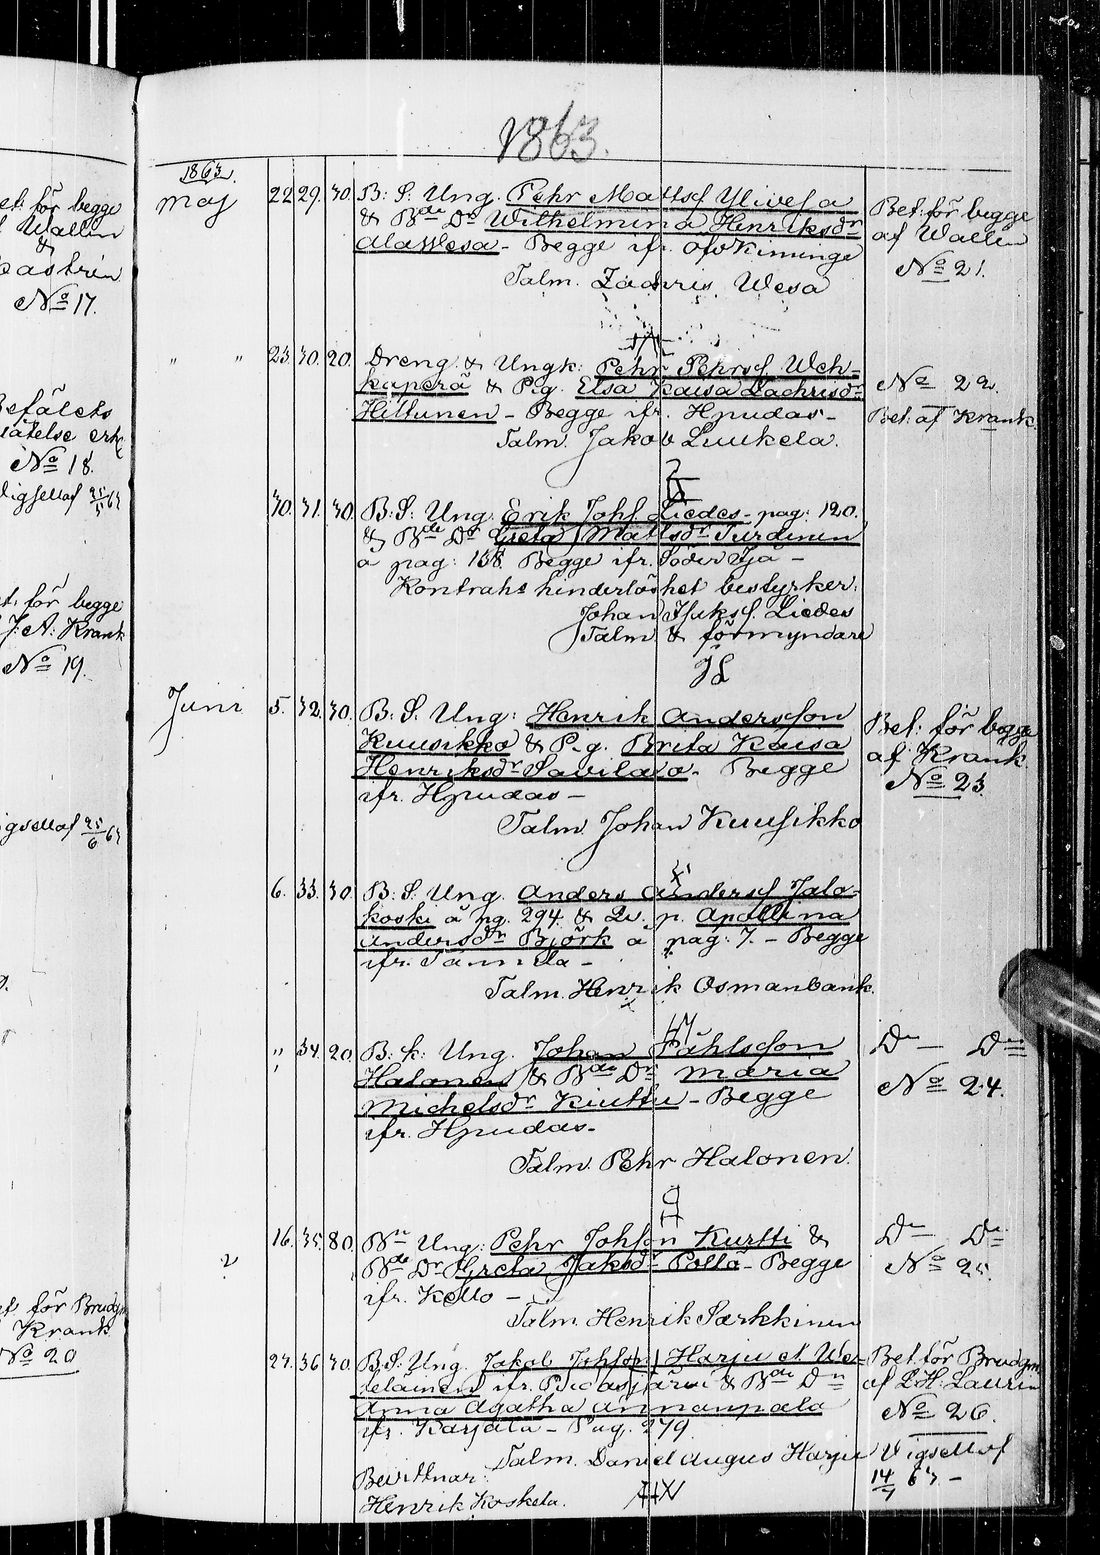 1863.
et: för begge
Wallin
&
Castrén
No 17.
No 18.
för begge
J. A. Krank
No 19.
för Brudgm
Krank
No 20
1863.
Maj 22 29. 30. B: S: Ung. Pehr Mattsf Ylivesa
& Bde Dr Wilhelmina Henriksdr
Alawesa - Begge ifr. Öfv Kiminge
Talm. Zachris Wesa
Bet: för begge
af Wallin
No 21.
" " 23. 30. 20. Dreng & Ungk: Pehr Pehrsf Weh-
kaperä & Pig. Elsa Kaisa Zachrisdr
Hiltunen - Begge ifr. Hjudas -
Talm. Jakob Luukela.
No 22.
Bet: af Krank.
30. 31. 30. B: S: Ung. Erik Johsf Liedes - pag: 120.
& Bde Dr Greta Mattsdr Turdinen
å pag: 158. Begge ifr. Söder Ijå -
Kontrahs hinderlöshet bestyrker:
Johan Isaksf. Liedes
Talm & förmyndare
JL
Juni 5. 32. 30. B: S. Ung: Henrik Andersson
Kuusikko & Pig. Brita Kaisa
Henriksdr Savilaxo - Begge
ifr. Hjudas -
Talm. Johan Kuusikko
Bet: för begge
af Krank.
No 23.
6. 33. 30. B. S. Ung. Anders Andersf Jalo-
koski å pg. 294. & Qv. p. Apollina
Andersdr Björk å pag: 7. - Begge
ifr. Tannila -
Talm. Henrik Osmanbank.
" 34. 20. B. k: Ung. Johan Påhlsson
Halonen & Bde Dr Maria
Michelsdr Kiuttu - Begge
ifr. Hjudas -
Talm. Pehr Halonen.
Do - Do
No 24.
16. 35. 80. Bn Ung: Pehr Johsson Kurtti &
Bde Dr Greta Jaksdr Pollä - Begge
ifr. Kello -
Talm. Henrik Särkkinen
Do - Do
No 25.
27. 36. 30. B. S. Ung. Jakob Johsson Harju et We-
teläinen ifr. Pudasjärvi & Bde Dr
Anna Agatha Annunpalo
ifr. Karjala - Pag. 279.
Talm. Daniel Augus Harju
Henrik Koskela.
Bet: för Brudgm
af L. H. Laurin
No 26.
Vigsellof
14/7 63. -